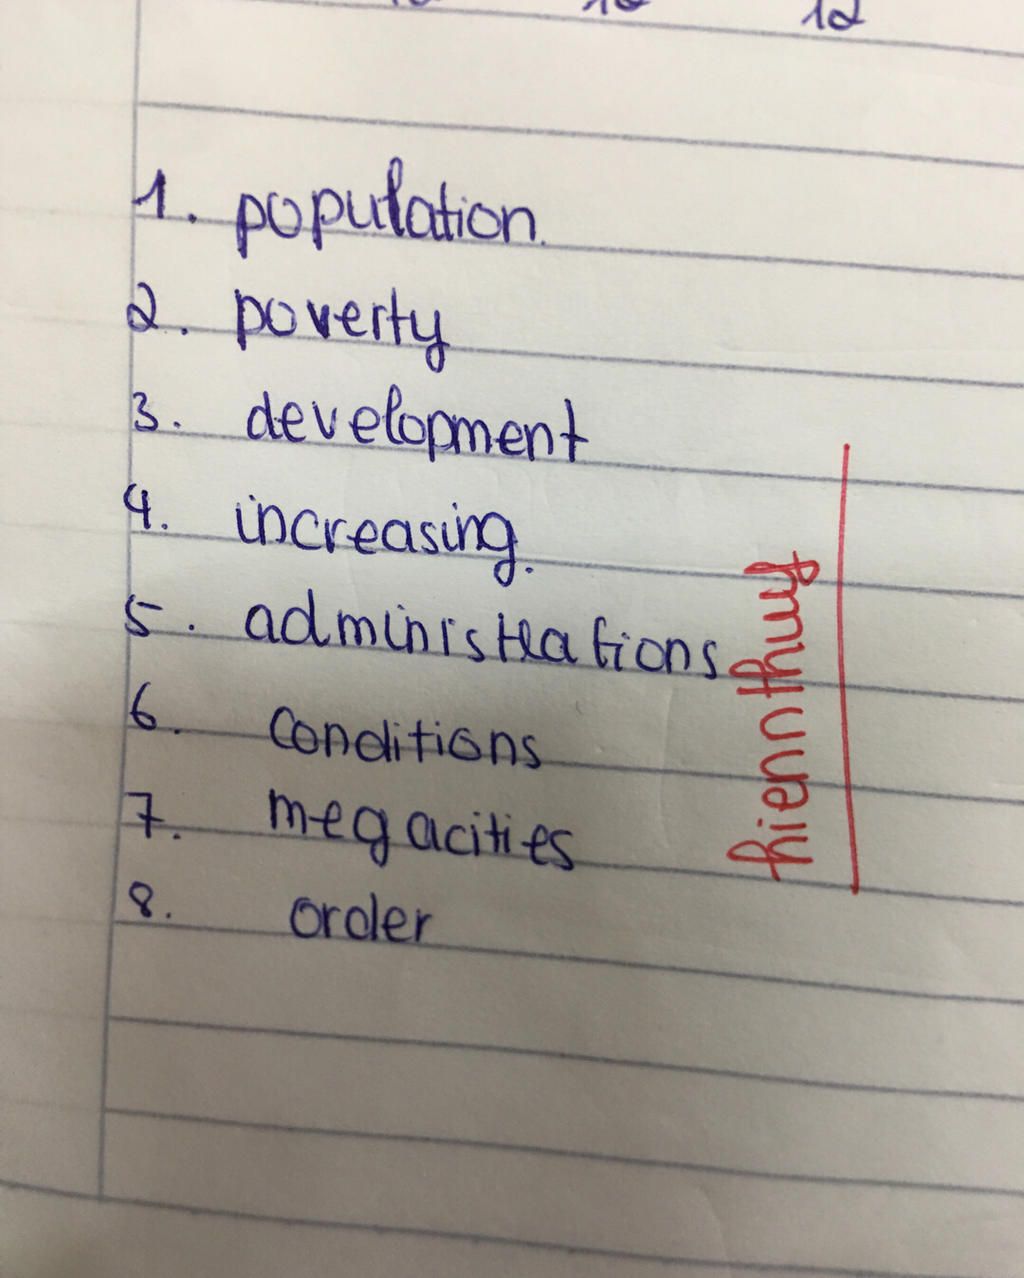 12
1. population.
2. poverty
3. development
4. increasing.
5. administrations
6. conditions
7. megacities
8. order
hiennthuy